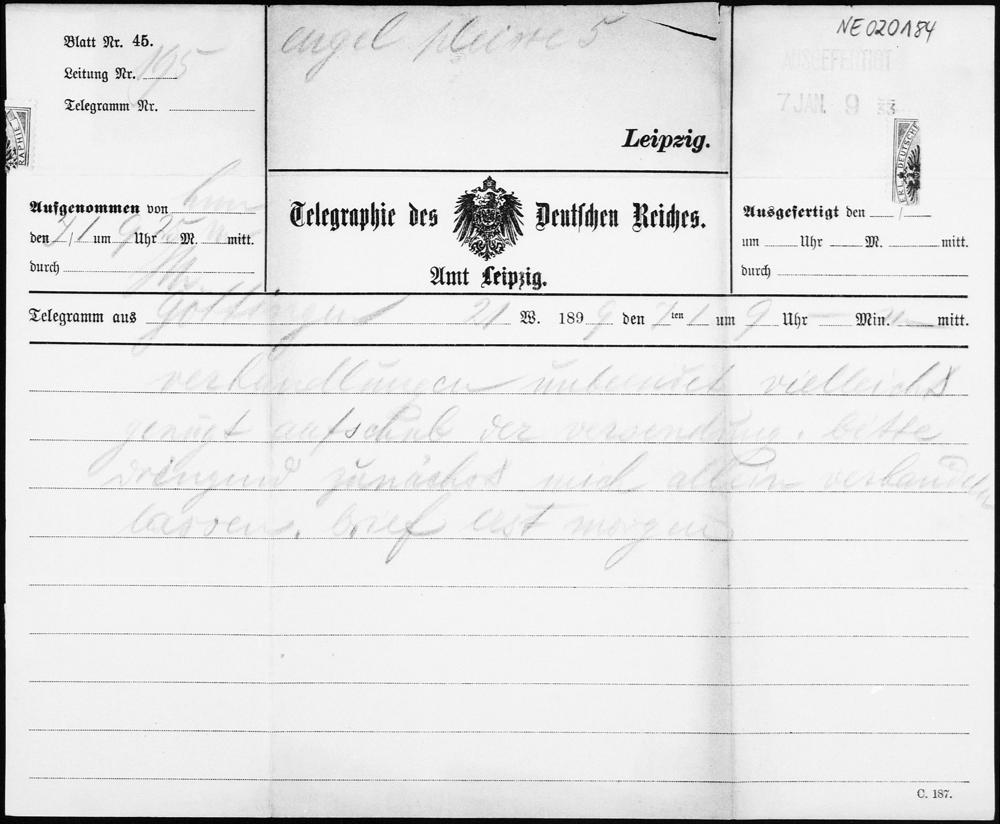 NE020184
Blatt Nr. 45.
Leitung Nr. 195
Telegramm Nr.
engel pleisse 5
Leipzig.
AUSGEFERTIGT
7 JAN. 9
Aufgenommen von
den 7/1 um 9 Uhr 25 M. mitt.
durch
Telegraphie des Deutschen Reiches.
Amt Leipzig.
Ausgefertigt den /
um Uhr M. mitt.
durch
Telegramm aus Göttingen 21 W. 1899 den 7ten 1 um 9 Uhr — Min. mitt.
verhandlungen unbeendet vielleicht
genügt aufschub der versendung. bitte
dringend zunächst mich allein verhandeln
lassen. brief erst morgen
C. 187.